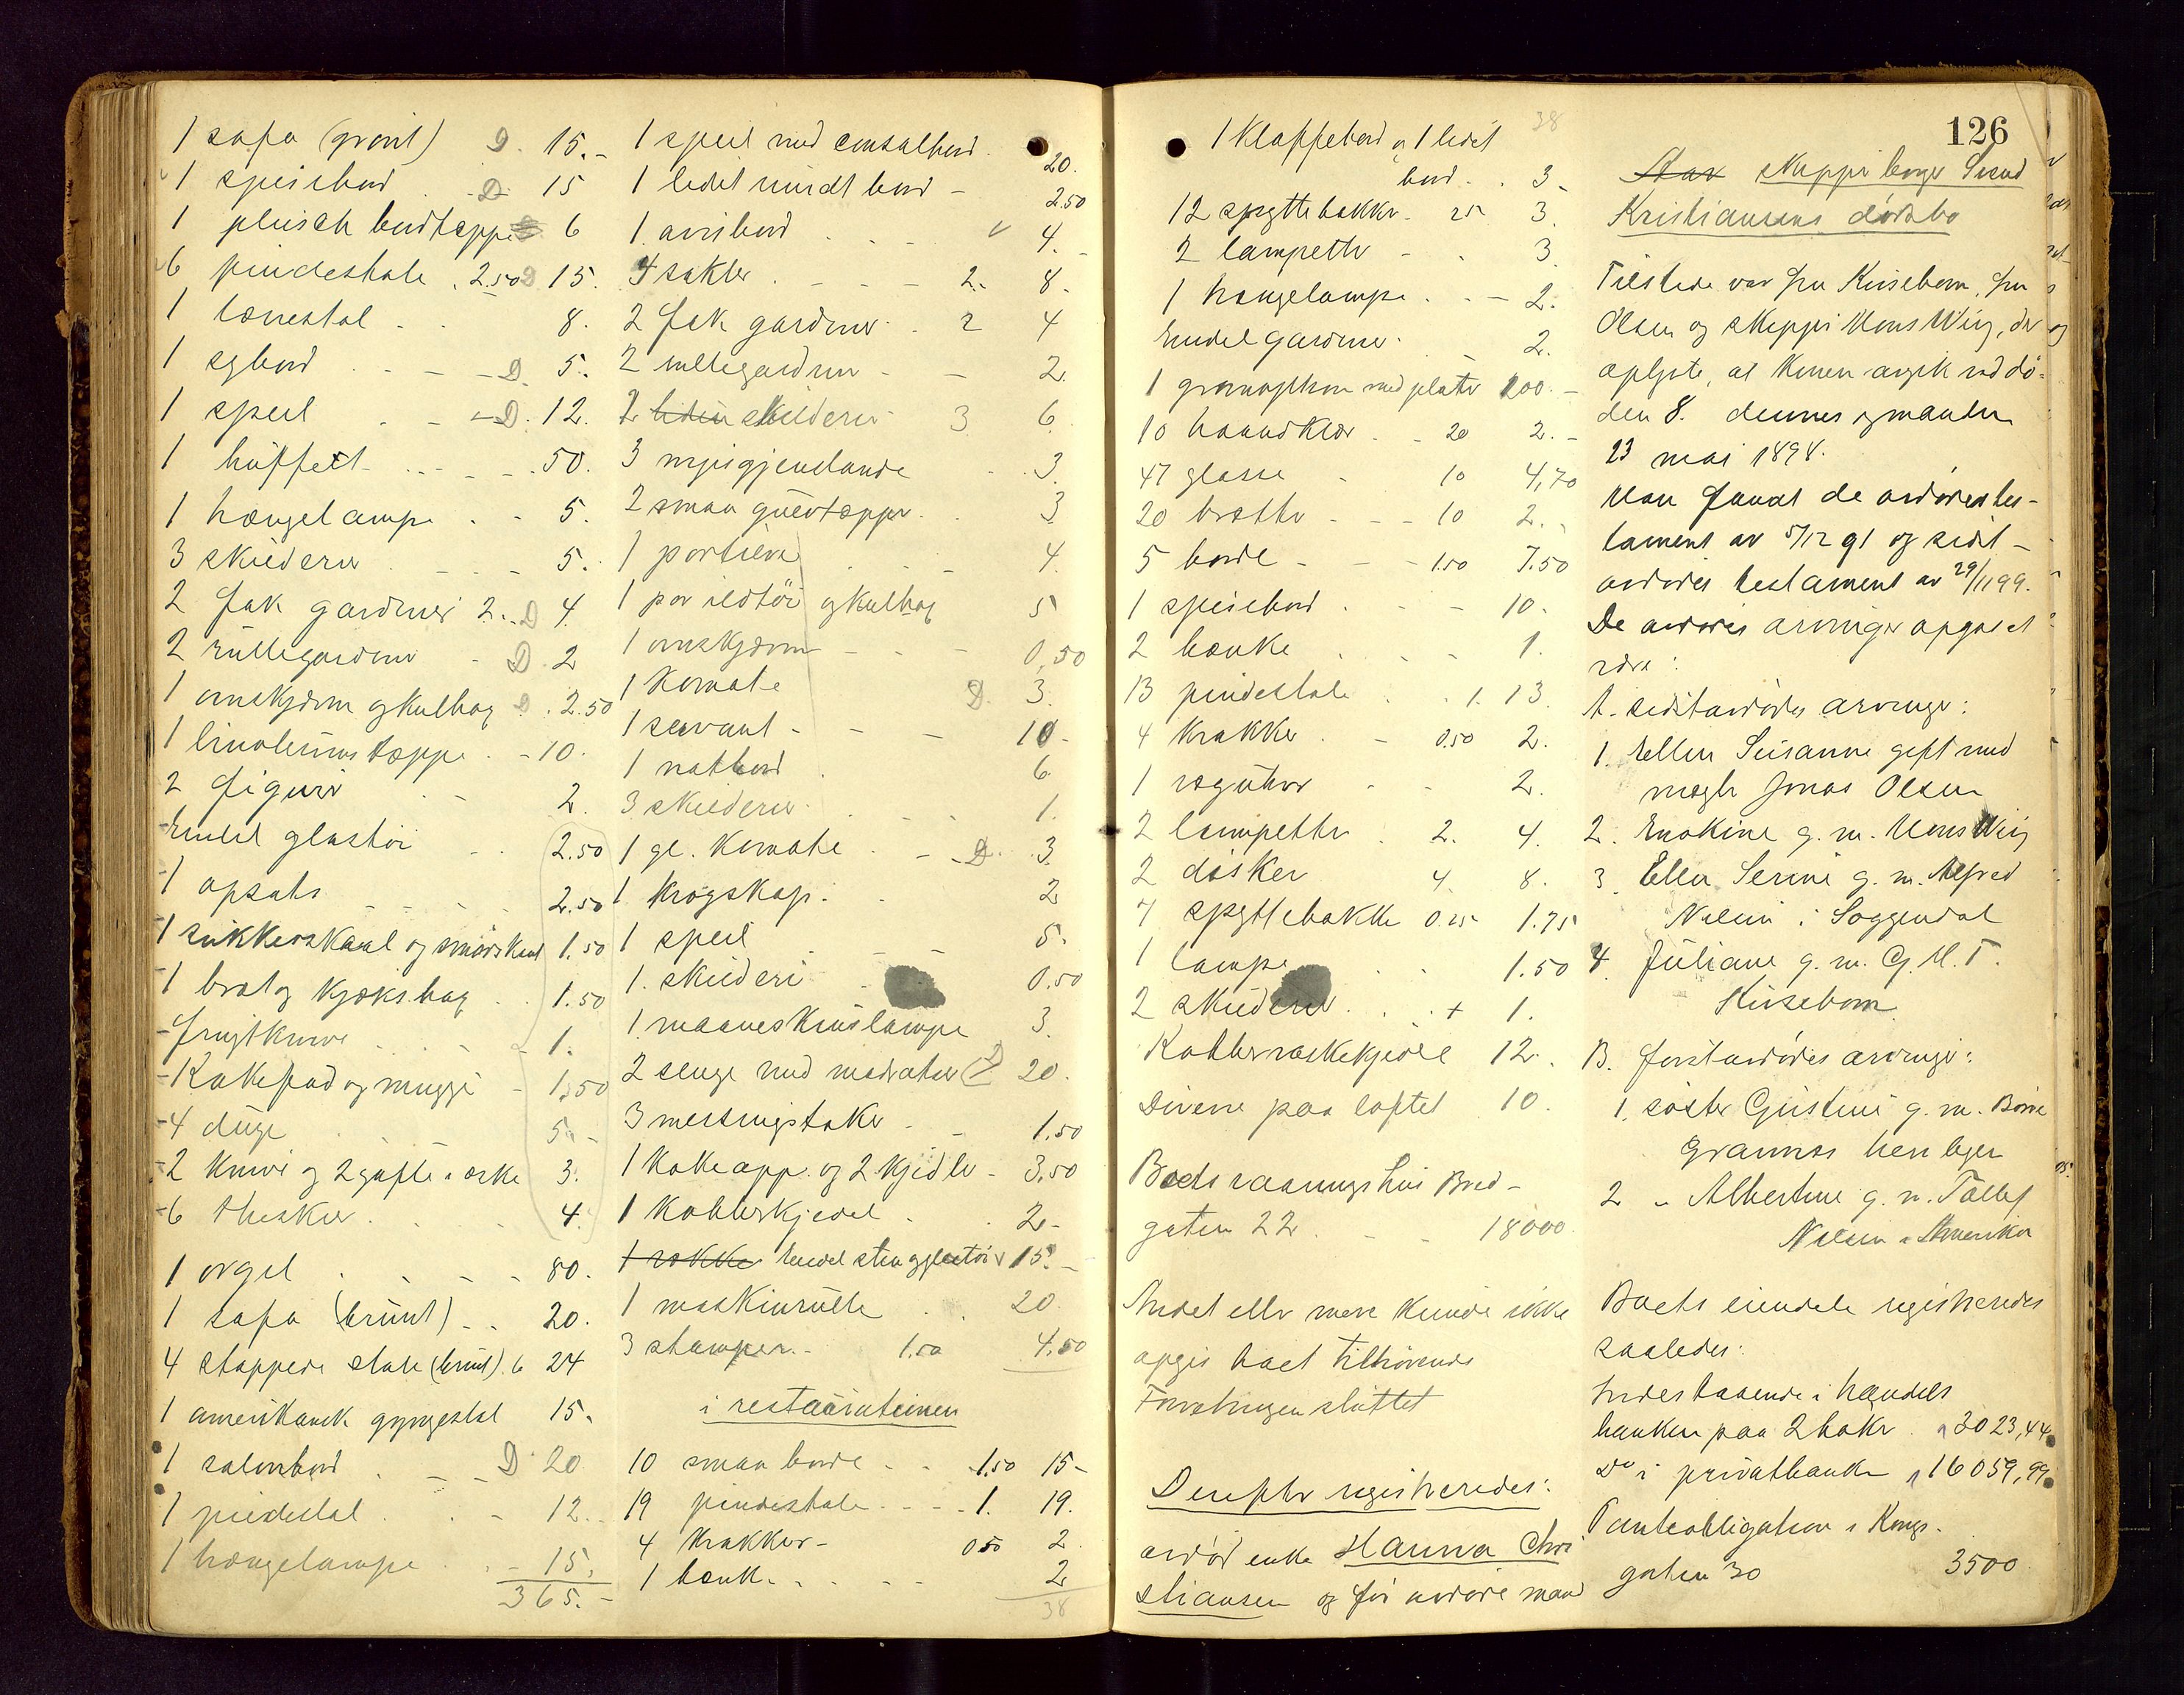 1 sofa (grönt) D. 15.-
1 speisebord . D. 15
1 plüsch bordtæppe 6
6 pindestole . 2.50 D 15.
1 lænestol . . 8.
1 sybord . - - D. 5.
1 speil . - - D. 12.
1 büffet - . - - . 50.
1 hængelampe . - 5.
3 skilderier . - - 5.
2 fak gardiner 2.- D 4.
2 rüllegardiner - D. 2
1 ovnskjærm og kulbox D . 2.50
1 linoleums tæppe . - 10.
2 figurer . - 2.
Endel glastöi . . 2.50
1 opsats - - - 2.50
1 sukkerskaal og smörskaal 1.50
1 bröd og kjæksbag . . 1.50
- frugtkurv . . - 1.
- Kakefad og mugge - 1.50
- 4 düge 5. -
- 2 knive og 2 gafle i æske 3.
- 6 theskeer . . . 4.
1 orgel . . - - 80.
1 sofa (brünt) - . 20.
4 stoppede stole (brünt). 6 24
1 amerikansk gyngestol 15.
1 salonbord . - - D 20
1 piedestal . . - 12.
1 hængelampe . . - 15.
365.-
1 speil med consolbord . 20.
1 lidet rundt bord - 2.50
1 avisbord . . - . v 4.-
4 stakler . - - - 2.- 8.
2 fak gardiner . . 2 4
2 rullegardiner - - 2.
2 liden skilderier 3 6
3 nipsgjenstande . . 3.
2 smaa gülvtæpper . . 3
1 portiere . . - 4.
1 par ildtöi og kulbox 5
1 ovnskjærm - - - 0,50
1 Komode D. 3.
1 servant - - - 10 -
1 natbord . 6
3 skilderier . . - 1.
1 gl. Komode . - D. . 3.
1 krogskap . . 2
1 speil . - - 5.
1. skilderi . 0.50
1 maaneskinslampe 3.
2 senge med madratser D 20.
3 messingstaker - - 1.50
1 kokeapp. og 2 kjedler - 3.50
1 Kobberkjedel . . 2.-
1 rokke Endel sten og glastöi v 15. -
1 maskinrulle . 20.
3 stamper - 1.50 4.50
i restaürationen
10 smaa borde - - 1.50 15 -
19 pindestole . - - . 1. 19.
4 krakker - 0.50 2.
1 bænk . . - - 2
38
38
1 Klappebord og 1 lidet
bord . . 3.
12 spyttebakker - 25 3.
2 lampetter - . 3.
1 hængelampe . - - 2.
Endel gardiner . - 2.
1 gramophon med plater 100. -
10 haandklær . - 20 2. -
47 glasse - 10 4,70
20 brætter - - - 10 2. -
5 borde - - - 1.50 7.50
1 speisebord . - - 10.
2 bænke . - - 1.
13 pindestole . . 1. 13.
4 krakker . - 0.50 2.
1 vægühr - - 2.
2 lampetter . 2. 4.
2 disker 4. 8.
7 spyttebakke 0.25 1.75
1 lampe . . 1.50
2 skilderier . . . + 1.
Kobbervaskekjedel 12.
Diverse paa loftet 10.
Boets vaaningshüs Bred-
gaten 22 . - - 18000.
Andet eller mere kunde ikke
opgis boet tilhörende
Forretningen sluttet
Derefter registreredes:
avdöd enke Hanna Chri
stiansen og för avdöde mand
126
Aar skipper borger Svend
Kristiansens dödsbo
Tilstede var fru Küsebom, fru
Olsen og skipper Mons Wiig, der
oplyste, at konen avgik ved dö-
den 8. dennes og manden
23 mai 1898.
Man fandt de avdödes tes-
tament av 5/12 91 og sidst-
avdödes testament av 29/11 99.
De avdödes arvinger opgaves at
være:
A. sidstavdödes arvinger:
1. Ellen Susanne gift med
mægler Jonas Olsen
2. Enokine g. m. Mons Wiig
3. Ellen Serine g. m. Alfred
Nilsen i Soggendal
4. Jüliane g. m. G. M. T.
Küsebom
B. förstavdödes arvinger:
1. söster Gustine g. m. Börre
Grannes Henleger
2 - Albertine g. m. Tollef
Nilsen i Amerika
Boets eiendele registreredes
saaledes:
Indestaaende i Handels
banken paa 2 bøker . 3023,44
Do i privatbanken 16059,99
Panteobligation i Kongs-
gaten 30 3500.